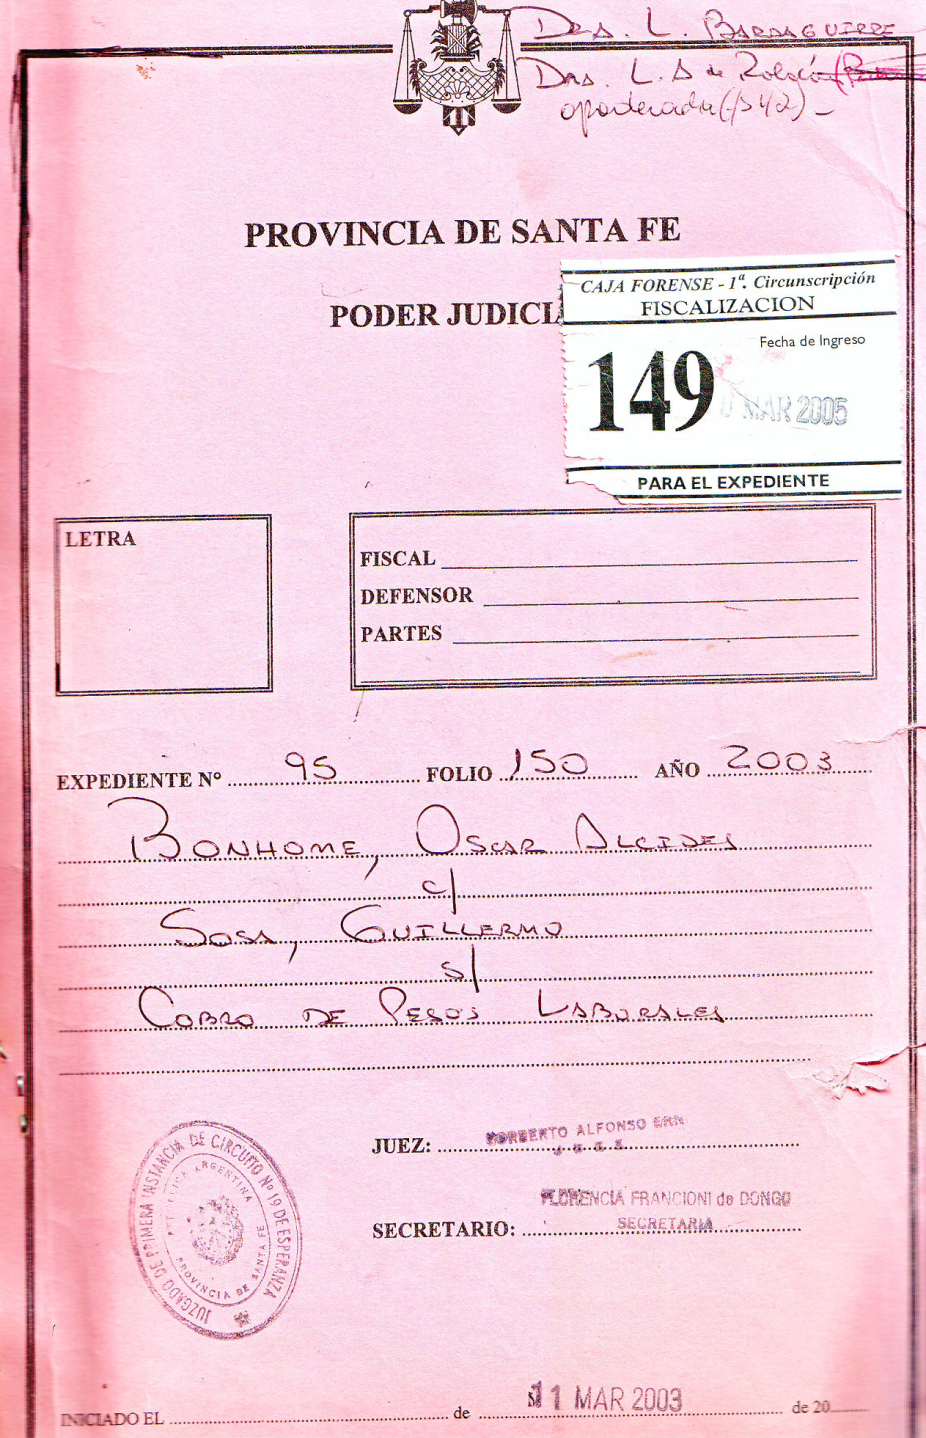 Dra. L. BARRAGUIRRE
Dra. L. A de
apoderada (fs 42) -
PROVINCIA DE SANTA FE
PODER JUDICI
CAJA FORENSE - 1ª. Circunscripción
FISCALIZACION
Fecha de Ingreso
149
MAR 2005
PARA EL EXPEDIENTE
LETRA
FISCAL
DEFENSOR
PARTES
EXPEDIENTE Nº 95 FOLIO 150 AÑO 2003
BONHOME, OSCAR ALCIDES
c/
SOSA, GUILLERMO
s/
COBRO DE PESOS LABORALES
JUZGADO DE PRIMERA INSTANCIA DE CIRCUITO Nº 19 DE ESPERANZA
REPUBLICA ARGENTINA
PROVINCIA DE SANTA FE
JUEZ: NORBERTO ALFONSO
Juez
SECRETARIO: FLORENCIA FRANCIONI de DONGO
SECRETARIA
INICIADO EL de 11 MAR 2003 de 20